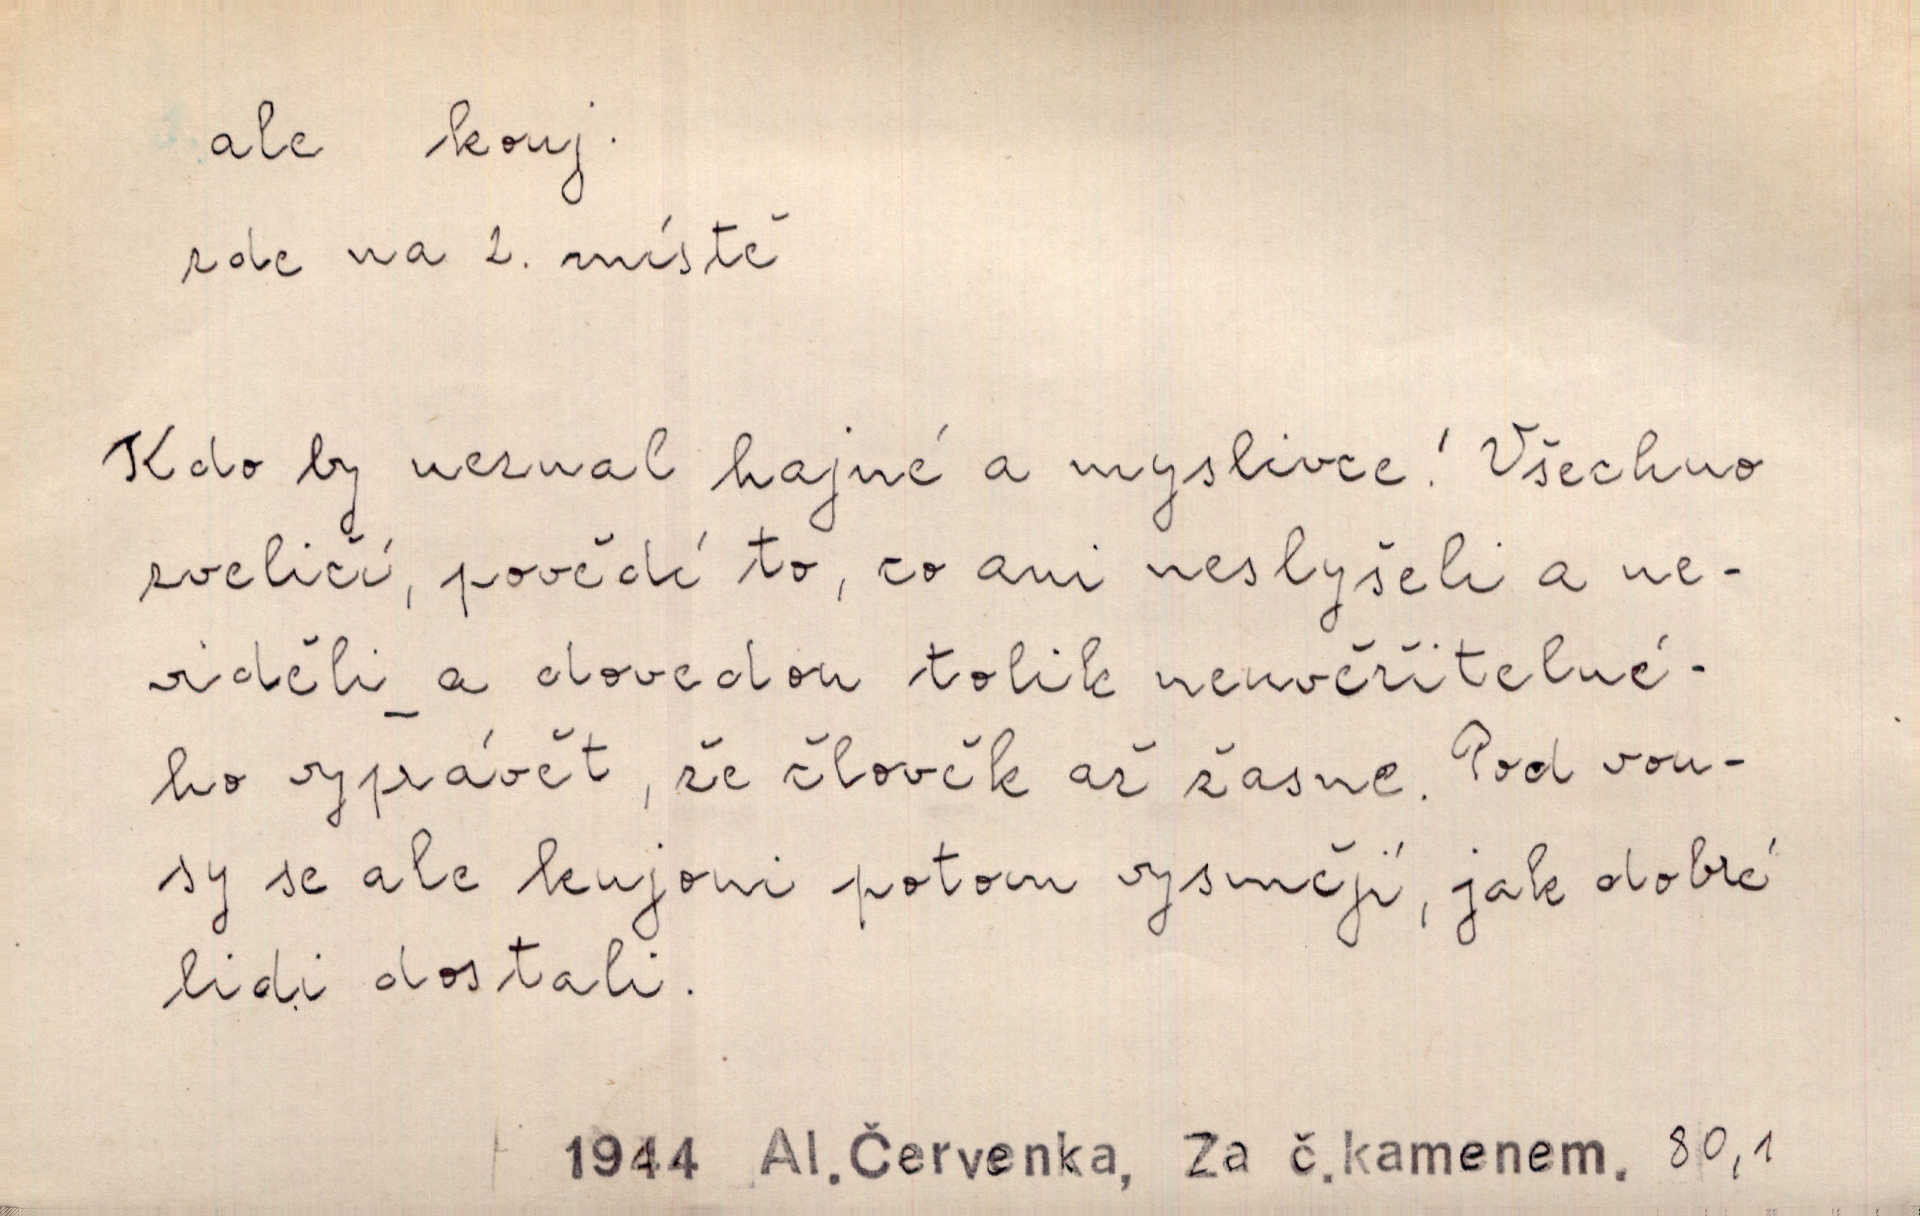 ale konj.
zde na 2. místě
Kdo by neznal hajné a myslivce! Všechno
zveličí, povědí to, co ani neslyšeli a ne-
viděli_a dovedou tolik neuvěřitelné-
ho vyprávět, že člověk až žasne. Pod vou-
sy se ale kujoni potom vysmějí, jak dobré
lidi dostali.
1944 Al.Červenka, Za č.kamenem. 80,1